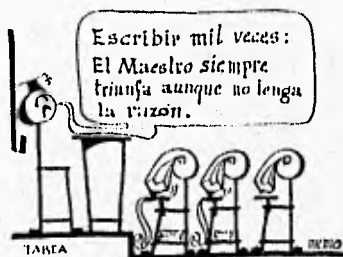 Escribir mil veces:
El Maestro siempre
triunfa aunque no tenga
la razón.
TAREA